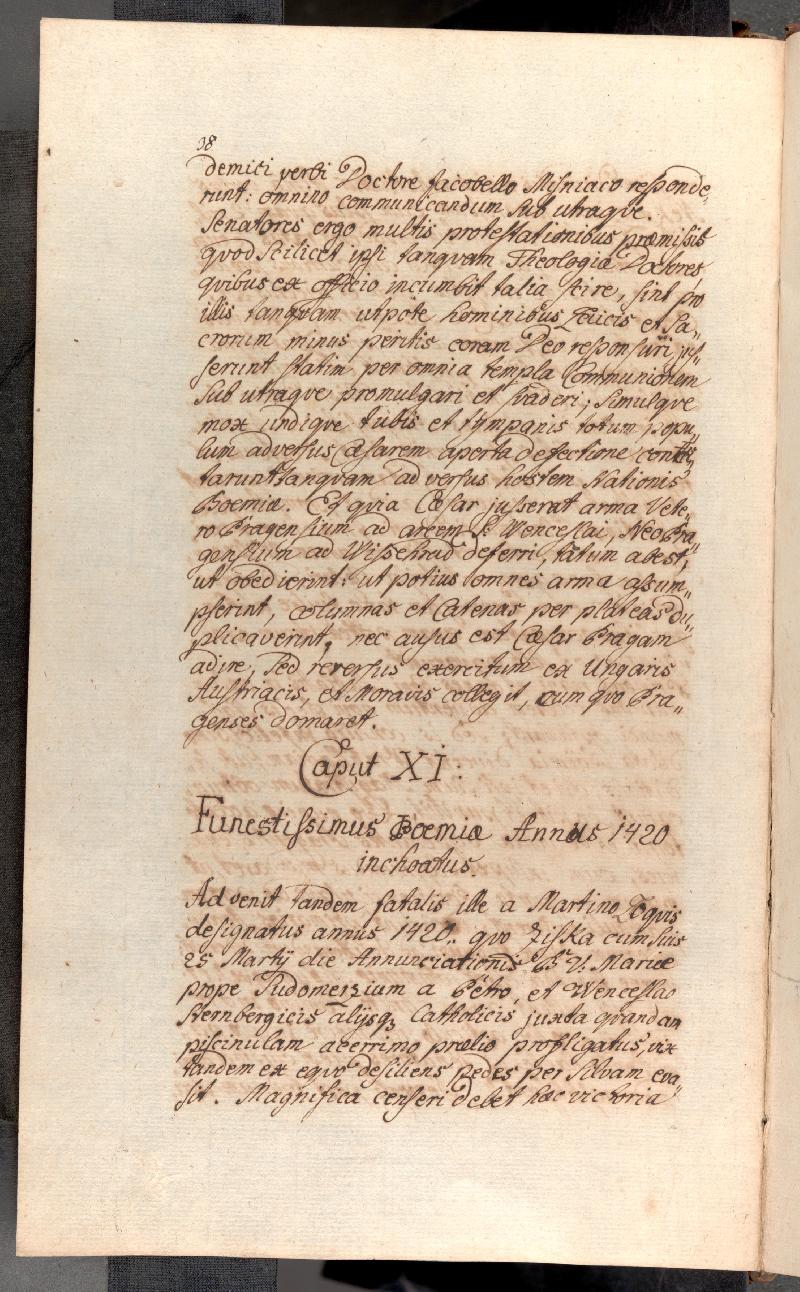 38
demici verbi Doctore Jacobello Misniaco responde„
runt: omnino communicandum sub utraqve.
Senatores ergo multis protestationibus præmissis
qvod scilicet ipsi tanqvam Theologiæ Doctores
qvibus ex officio incumbit talia scire, sint pro
illis tanqvam utpote hominibus Laicis et Sa„
crorum minus peritis coram Deo responsuri jus„
serunt statim per omnia templa Communionem
sub utraqve promulgari et svaderi; simulqve
mox undiqve tubis et tympanis totum popu„
lum adversus Cæsarem aperta defectione conci„
tarunt tanqvam adversus hostem Nationis
Boemiæ. Et qvia Cæsar jusserat arma Vete„
ro Pragensium ad arcem S. Wenceslai, Neo Pra„
gensium ad Wissehrad deferri, tatum abest,
ut obedierint: ut potius omnes arma assum„
pserint, columnas et Catenas per plateas du„
plicaverint, nec ausus est Cæsar Pragam
adire, sed reversus exercitum ex Ungaris
Austriacis, et Moravis collegit, cum qvo Pra„
genses domaret.
Caput XI:
Funestissimus Boemiæ Annus 1420
inchoatus.
Advenit tandem fatalis ille a Martino Loqvis
designatus annus 1420. qvo Ziska cum suis
25 Martij die Annunciationis B. V. Mariæ
prope Sudomerzium a Petro, et Wenceslao
Sternbergicis alijsq3 Catholicis juxta qvandam
piscinulam acerrimo prælio profligatus, vix
tandem ex eqvo desiliens pedes per Silvam eva„
sit. Magnifica censeri debet hæc victoria